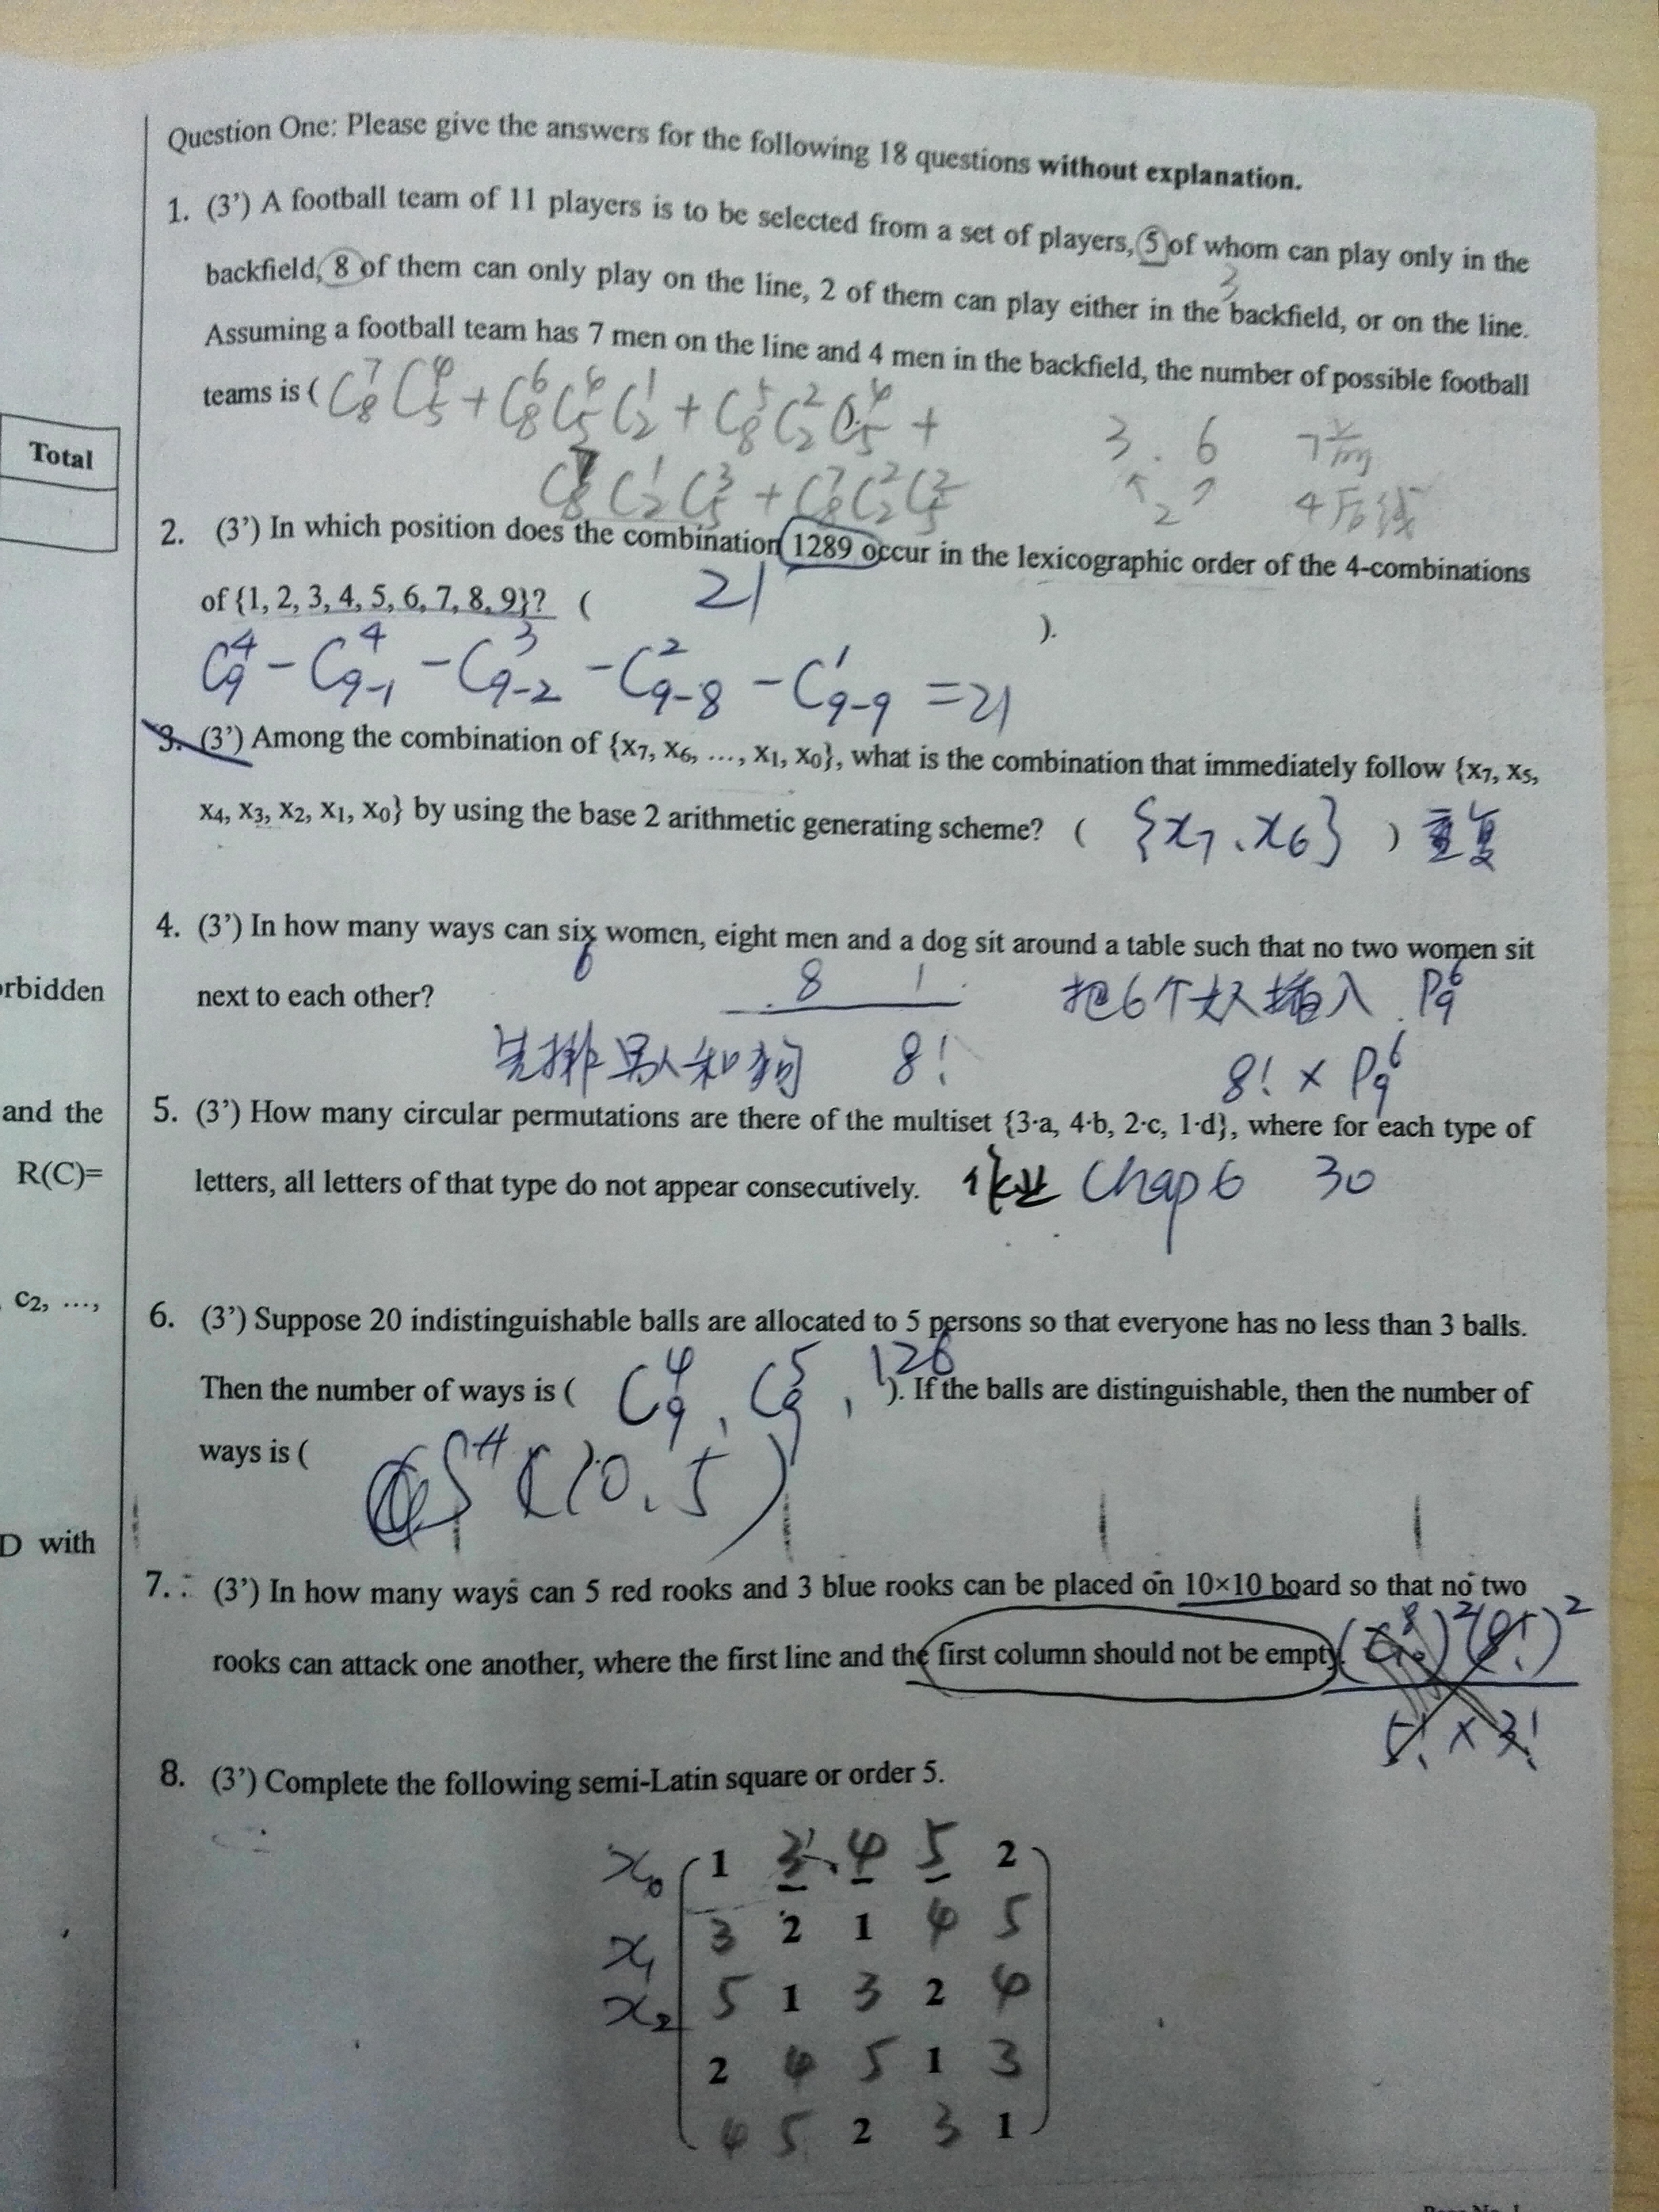 Question One: Please give the answers for the following 18 questions without explanation.
1. (3’) A football team of 11 players is to be selected from a set of players, 5 of whom can play only in the
backfield, 8 of them can only play on the line, 2 of them can play either in the backfield, or on the line.
3
Assuming a football team has 7 men on the line and 4 men in the backfield, the number of possible football
teams is ( C₈⁷C₅⁴ + C₈⁶C₅⁴C₂¹ + C₈⁵C₂²C₅⁴ +
C₈⁷C₂¹C₅³ + C₈⁷C₂²C₅²
3 . 6 7前
2 4后线
Total
2. (3’) In which position does the combination 1289 occur in the lexicographic order of the 4-combinations
of {1, 2, 3, 4, 5, 6, 7, 8, 9}? ( 21 ).
C₉⁴ − C₉₋₁⁴ − C₉₋₂³ − C₉₋₈² − C₉₋₉¹ = 21
3. (3’) Among the combination of {x₇, x₆, …, x₁, x₀}, what is the combination that immediately follow {x₇, x₅,
x₄, x₃, x₂, x₁, x₀} by using the base 2 arithmetic generating scheme? ( {x₇、x₆} ) 重复
4. (3’) In how many ways can six women, eight men and a dog sit around a table such that no two women sit
6
rbidden
next to each other? 8 1 把6个女人插入 P₉⁶
先排男人和狗 8! 8! × P₉⁶
and the
5. (3’) How many circular permutations are there of the multiset {3·a, 4·b, 2·c, 1·d}, where for each type of
R(C)=
letters, all letters of that type do not appear consecutively. 作业 Chap 6 30
c₂, …,
6. (3’) Suppose 20 indistinguishable balls are allocated to 5 persons so that everyone has no less than 3 balls.
Then the number of ways is ( C₉⁴, C₉⁵, 126 ). If the balls are distinguishable, then the number of
ways is ( S# (10, 5)
D with
7. (3’) In how many ways can 5 red rooks and 3 blue rooks can be placed on 10×10 board so that no two
rooks can attack one another, where the first line and the first column should not be empty.
5! × 3!
8. (3’) Complete the following semi-Latin square or order 5.
x₀ 1 3 4 5 2
x₁ 3 2 1 4 5
x₂ 5 1 3 2 4
2 4 5 1 3
4 5 2 3 1